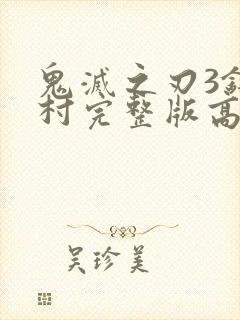 鬼滅之刃3
村完整版高
吴珍美